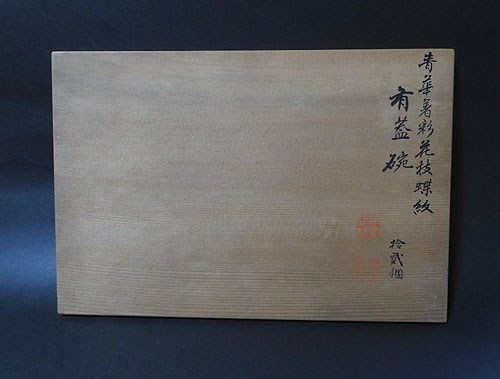 青華着彩花枝蝶紋
有蓋碗
拾貳個